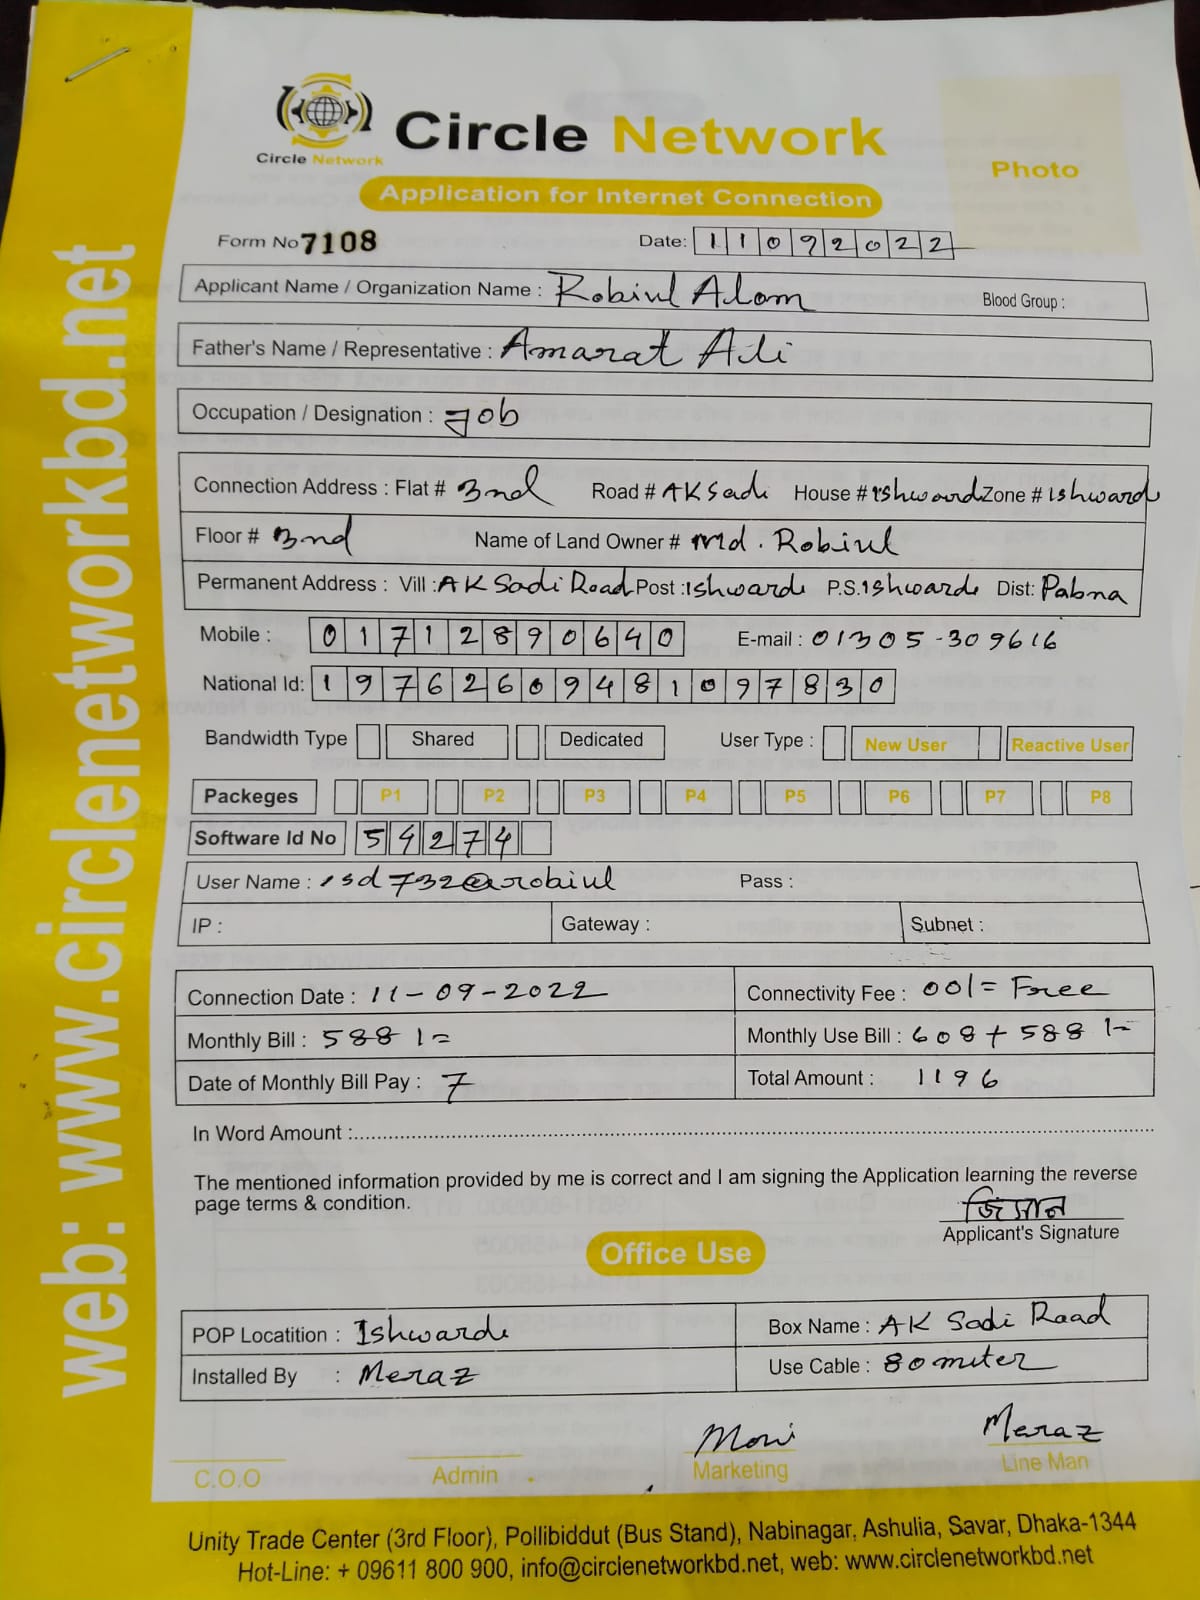 Circle Network
Circle Network
Application for Internet Connection
Photo
Form No 7108
Date: 11092022
Applicant Name / Organization Name : Robiul Alom Blood Group :
Father's Name / Representative : Amarat Ali
Occupation / Designation : Job
Connection Address : Flat # 3nd Road # AK Sadi House # ishwardi Zone # Ishward
Floor # 3nd Name of Land Owner # Md. Robiul
Permanent Address : Vill : AK Sadi Road Post : Ishwarde P.S. Ishwarde Dist: Pabna
Mobile : 01712890640 E-mail : 01305-309616
National Id: 19762609481097830
Bandwidth Type Shared Dedicated User Type : New User Reactive User
Packeges P1 P2 P3 P4 P5 P6 P7 P8
Software Id No 54274
User Name : isd732@robiul Pass :
IP : Gateway : Subnet :
Connection Date : 11-09-2022 Connectivity Fee : 00/= Free
Monthly Bill : 588 /= Monthly Use Bill : 608 + 588 /=
Date of Monthly Bill Pay : 7 Total Amount : 1196
In Word Amount :
The mentioned information provided by me is correct and I am signing the Application learning the reverse
page terms & condition.
Applicant's Signature
Office Use
POP Locatition : Ishwarde Box Name : AK Sadi Road
Installed By : Meraz Use Cable : 80 miter
Moni Meraz
C.O.O Admin Marketing Line Man
Unity Trade Center (3rd Floor), Pollibiddut (Bus Stand), Nabinagar, Ashulia, Savar, Dhaka-1344
Hot-Line: + 09611 800 900, info@circlenetworkbd.net, web: www.circlenetworkbd.net
web: www.circlenetworkbd.net